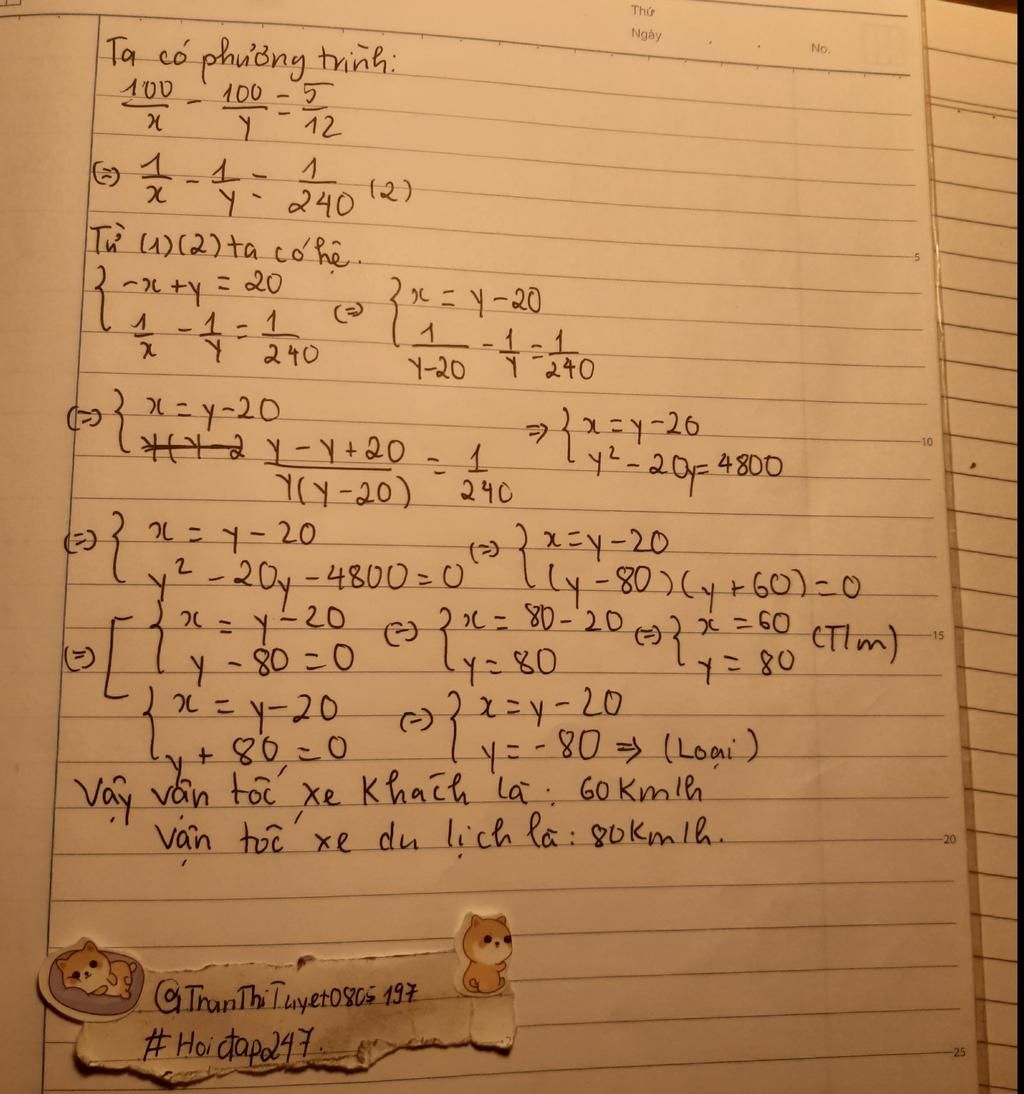 Thứ
Ngày . . No.
Ta có phương trình:
100/x - 100/y = 5/12
(=) 1/x - 1/y = 1/240 (2)
Từ (1)(2) ta có hệ.
{ -x+y = 20 (=) { x = y-20
{ 1/x - 1/y = 1/240 { 1/(y-20) - 1/y = 1/240
5
(=) { x = y-20 => { x = y-20
{ (y-y+20)/(y(y-20)) = 1/240 { y² - 20y = 4800
10
(=) { x = y-20 (=) { x = y-20
{ y² - 20y - 4800 = 0 { (y-80)(y+60) = 0
(=) [ { x = y-20 (=) { x = 80-20 (=) { x = 60 (T/m)
{ y - 80 = 0 { y = 80 { y = 80
15
{ x = y-20 (=) { x = y-20
{ y + 80 = 0 { y = -80 => (Loại)
Vậy vận tốc xe Khách là: 60Km/h
Vận tốc xe du lịch là: 80Km/h.
20
@TranThiTuyet0805197
#Hoidap247.
25